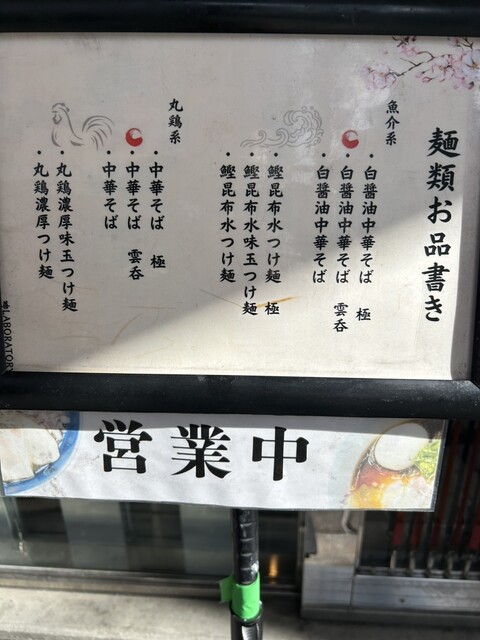 麺類お品書き
魚介系
・白醤油中華そば 極
・白醤油中華そば 雲呑
・白醤油中華そば
・鰹昆布水つけ麺 極
・鰹昆布水味玉つけ麺
・鰹昆布水つけ麺
丸鶏系
・中華そば 極
・中華そば 雲呑
・中華そば
・丸鶏濃厚味玉つけ麺
・丸鶏濃厚つけ麺
LABORATORY
営業中